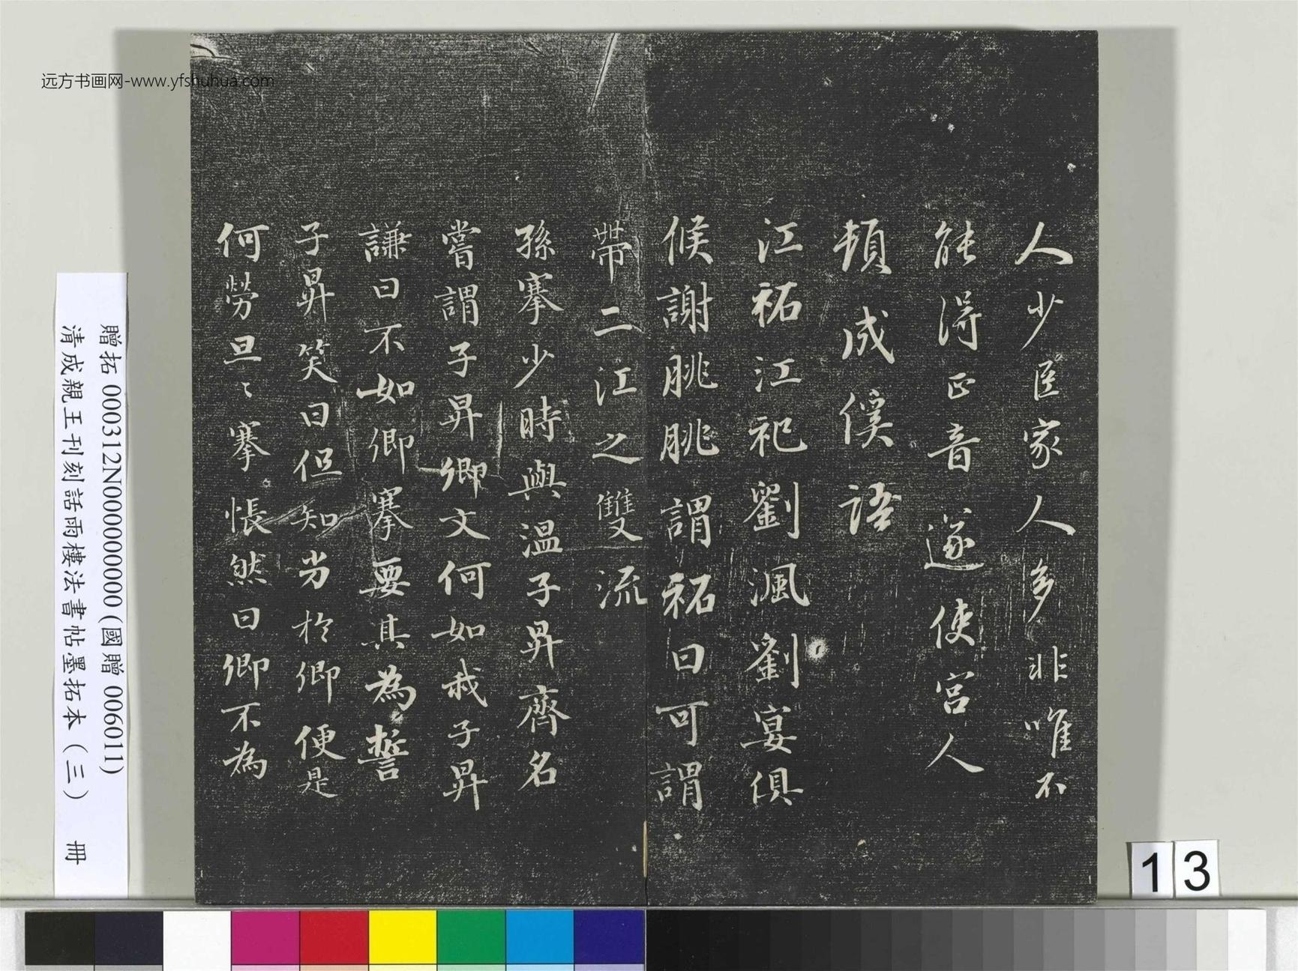 远方书画网-www.yfshuhua.com
人少臣家人多非唯不
能得正音遂使宮人
頓成傒語
江祏江祀劉渢劉宴俱
候謝朓朓謂祏曰可謂
帶二江之雙流
孫搴少時與溫子昇齊名
嘗謂子昇卿文何如我子昇
謙曰不如卿搴要其為誓
子昇笑曰但知劣於卿便是
何勞旦〻搴悵然曰卿不為
贈拓 000312N000000000(國贈 006011)
清成親王刊刻話雨樓法書帖墨拓本(三) 冊
13